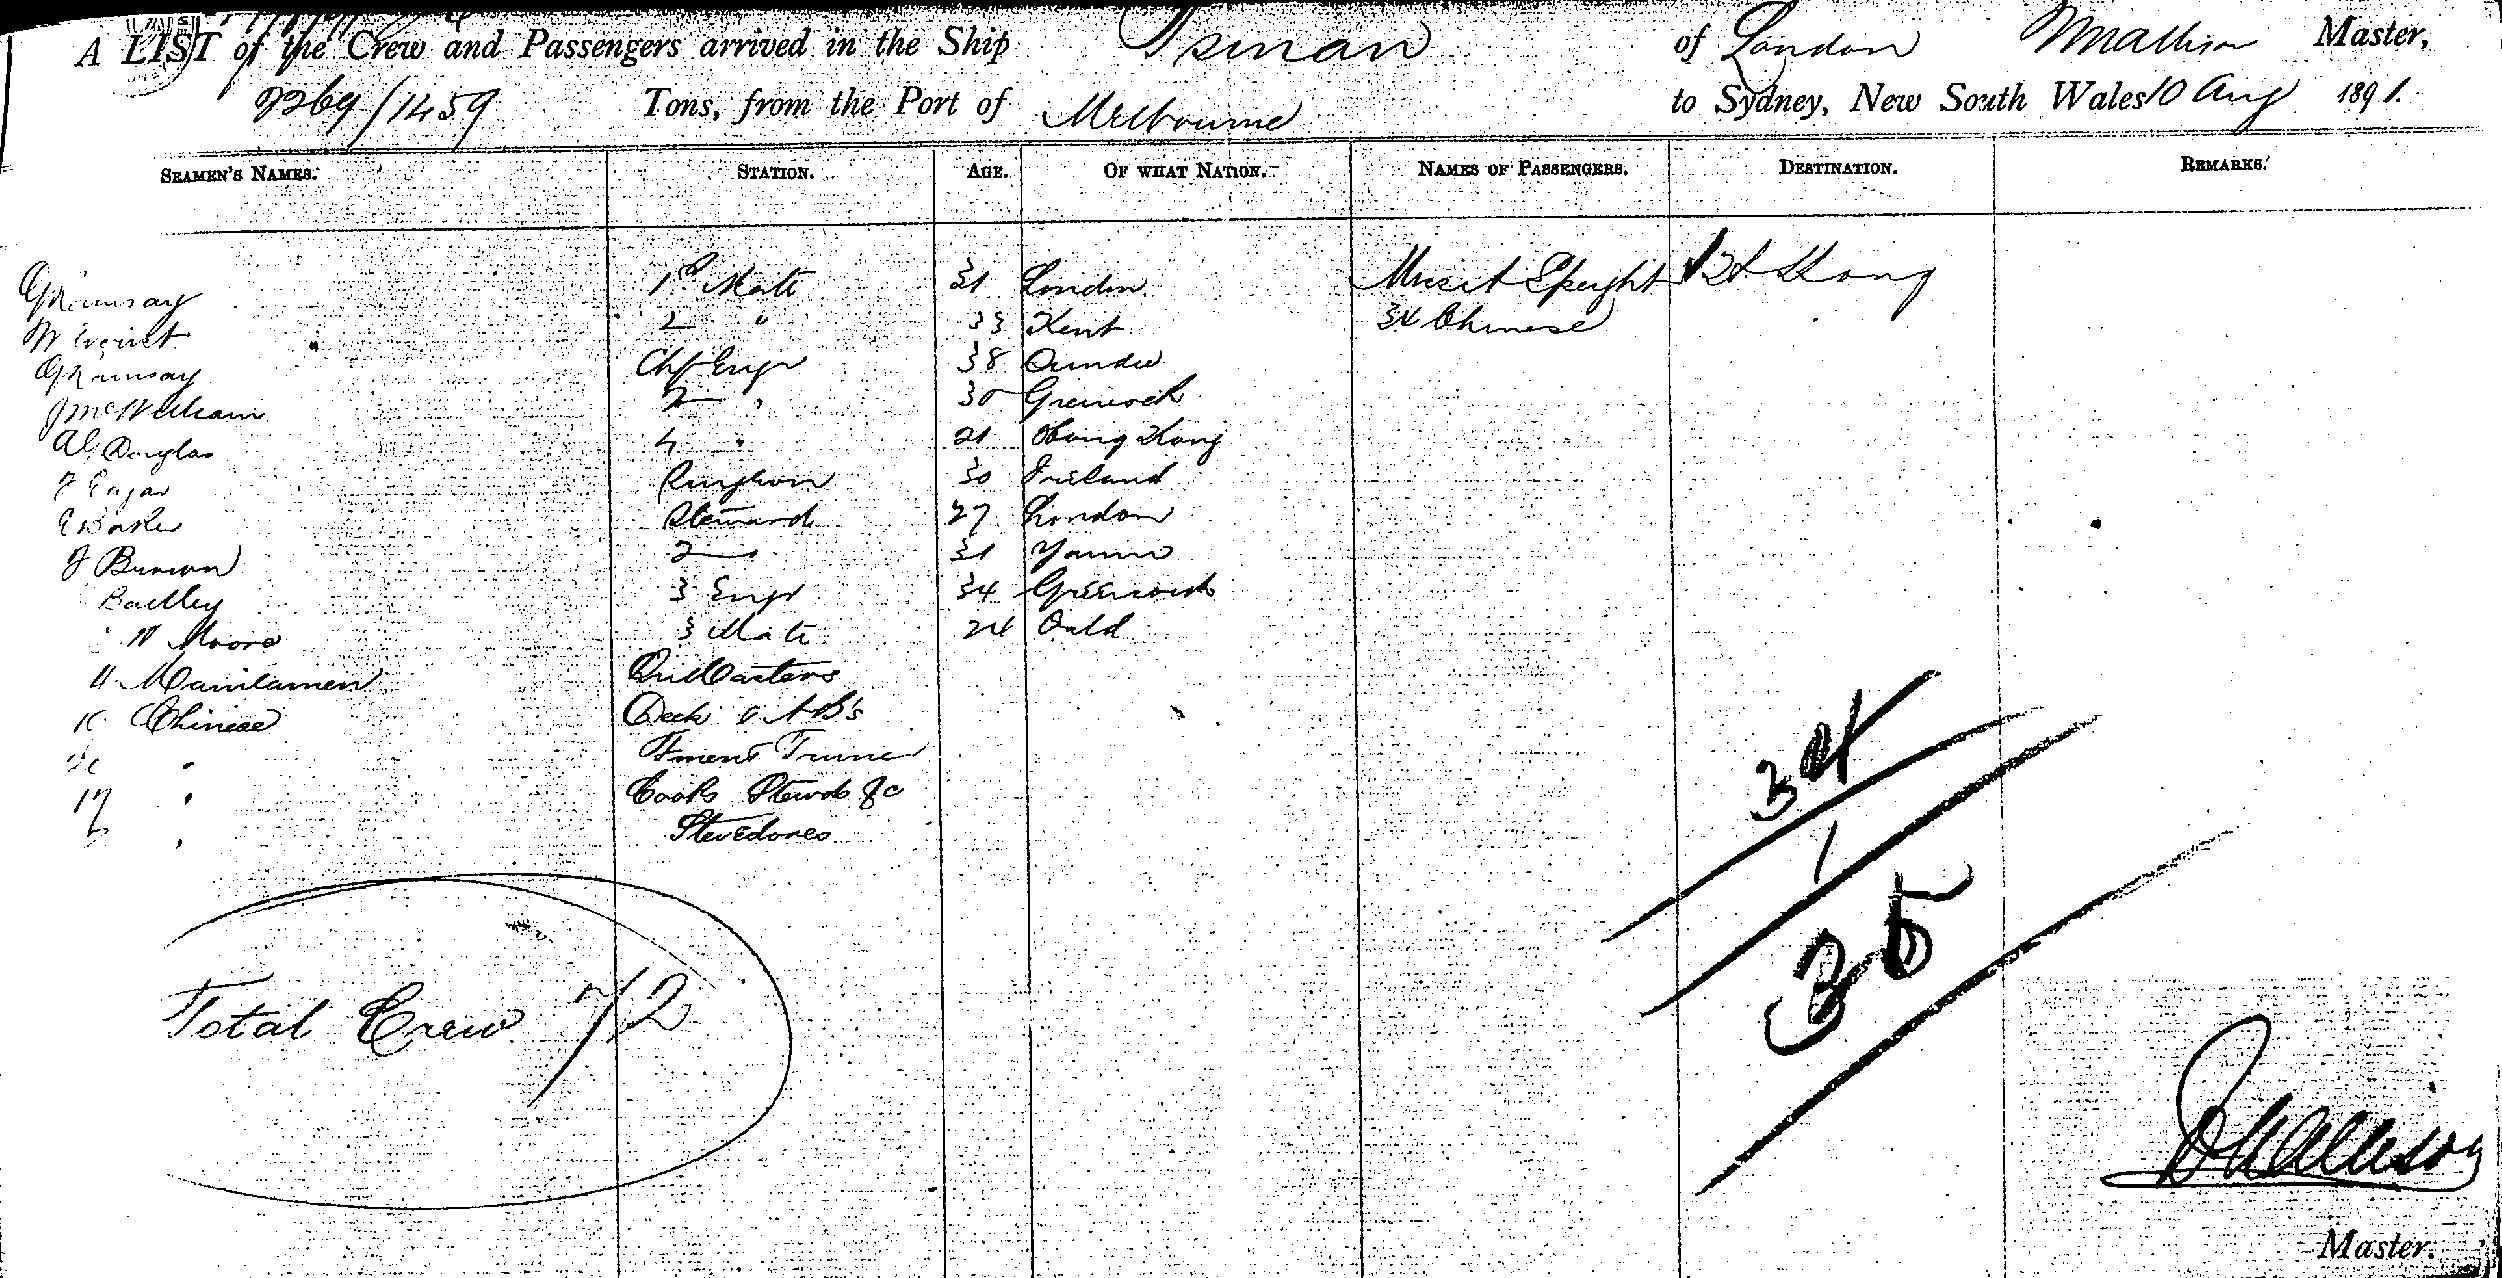 A LIST of the Crew and Passengers arrived in the Ship Tsinan of London Mathison Master,
2269/1459 Tons, from the Port of Melbourne to Sydney, New South Wales 10 Aug 1891.
SEAMEN'S NAMES. STATION. AGE. OF WHAT NATION. NAMES OF PASSENGERS. DESTINATION. REMARKS.
G Ramsay 1st Mate 31 London Speight H Kong
W 2 " 33 Kent 34 Chinese
G Ramsay Chf Engr 38 Dundee
J McWilliam 2 " 30 Greenock
Al Douglas 4 " 21 Hong Kong
30 Ireland
E Baker Steward 27 London
J Brown 2 " 31
Badley 3 Engr 34 Greenock
W Moore 3 Mate 24
4 Manilamen Qr Masters
Chinese Deck & AB's
" Fmen & Trimer
17 " Cooks Stewds &c
" Stevedores
34
1
35
Total Crew 72
Mathison
Master.